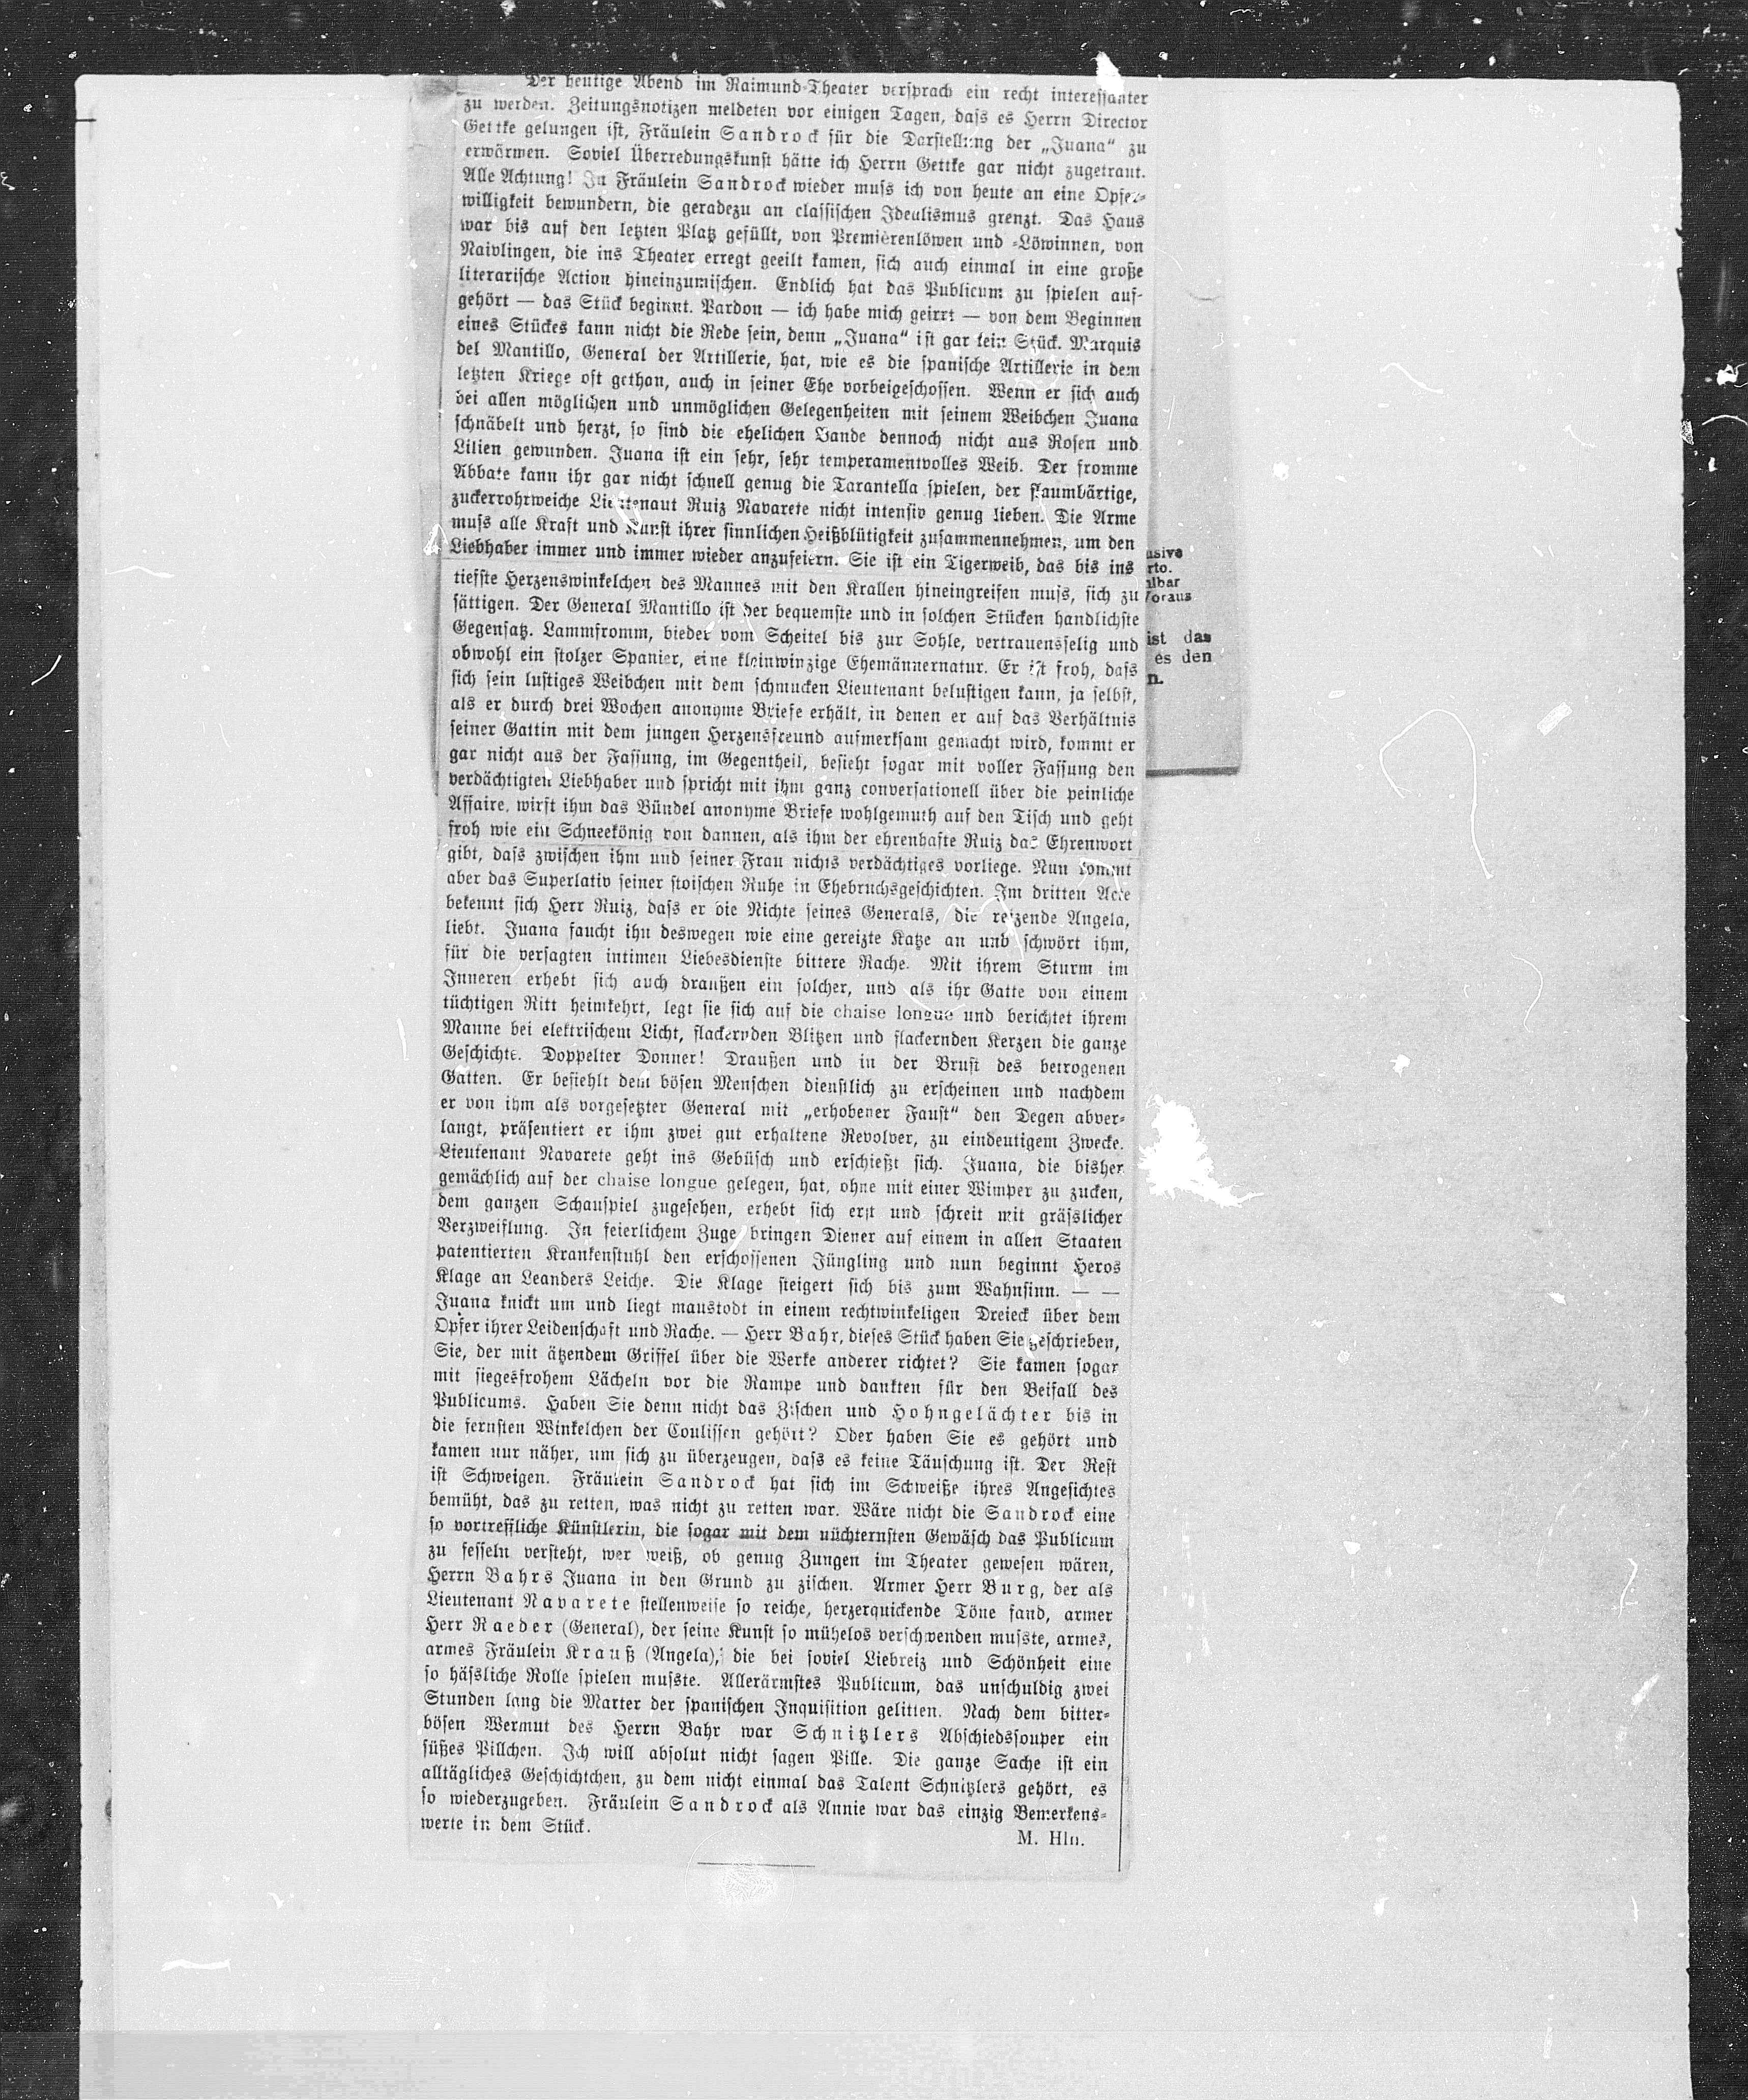 Der heutige Abend im Raimund-Theater versprach ein recht interessanter
zu werden. Zeitungsnotizen meldeten vor einigen Tagen, dass es Herrn Director
Gettke gelungen ist, Fräulein Sandrock für die Darstellung der „Juana“ zu
erwärmen. Soviel Überredungskunst hätte ich Herrn Gettke gar nicht zugetraut.
Alle Achtung! In Fräulein Sandrock wieder muss ich von heute an eine Opfer-
willigkeit bewundern, die geradezu an classischen Idealismus grenzt. Das Haus
war bis auf den letzten Platz gefüllt, von Premièrenlöwen und -Löwinnen, von
Naivlingen, die ins Theater erregt geeilt kamen, sich auch einmal in eine große
literarische Action hineinzumischen. Endlich hat das Publicum zu spielen auf-
gehört — das Stück beginnt. Pardon — ich habe mich geirrt — von dem Beginnen
eines Stückes kann nicht die Rede sein, denn „Juana“ ist gar kein Stück. Marquis
del Mantillo, General der Artillerie, hat, wie es die spanische Artillerie in dem
letzten Kriege oft gethan, auch in seiner Ehe vorbeigeschossen. Wenn er sich auch
bei allen möglichen und unmöglichen Gelegenheiten mit seinem Weibchen Juana
schnäbelt und herzt, so sind die ehelichen Bande dennoch nicht aus Rosen und
Lilien gewunden. Juana ist ein sehr, sehr temperamentvolles Weib. Der fromme
Abbate kann ihr gar nicht schnell genug die Tarantella spielen, der flaumbärtige,
zuckerrohrweiche Lieutenant Ruiz Navarete nicht intensiv genug lieben. Die Arme
muss alle Kraft und Kunst ihrer sinnlichen Heißblütigkeit zusammennehmen, um den
Liebhaber immer und immer wieder anzufeiern. Sie ist ein Tigerweib, das bis ins
tiefste Herzenswinkelchen des Mannes mit den Krallen hineingreifen muss, sich zu
sättigen. Der General Mantillo ist der bequemste und in solchen Stücken handlichste
Gegensatz. Lammfromm, bieder vom Scheitel bis zur Sohle, vertrauensselig und
obwohl ein stolzer Spanier, eine kleinwinzige Ehemännernatur. Er ist froh, dass
sich sein lustiges Weibchen mit dem schmucken Lieutenant belustigen kann, ja selbst,
als er durch drei Wochen anonyme Briefe erhält, in denen er auf das Verhältnis
seiner Gattin mit dem jungen Herzensfreund aufmerksam gemacht wird, kommt er
gar nicht aus der Fassung, im Gegentheil, besieht sogar mit voller Fassung den
verdächtigten Liebhaber und spricht mit ihm ganz conversationell über die peinliche
Affaire, wirft ihm das Bündel anonyme Briefe wohlgemuth auf den Tisch und geht
froh wie ein Schneekönig von dannen, als ihm der ehrenhafte Ruiz das Ehrenwort
gibt, dass zwischen ihm und seiner Frau nichts verdächtiges vorliege. Nun kommt
aber das Superlativ seiner stoischen Ruhe in Ehebruchsgeschichten. Im dritten Acte
bekennt sich Herr Ruiz, dass er die Nichte seines Generals, die reizende Angela,
liebt. Juana faucht ihn deswegen wie eine gereizte Katze an und schwört ihm,
für die versagten intimen Liebesdienste bittere Rache. Mit ihrem Sturm im
Inneren erhebt sich auch draußen ein solcher, und als ihr Gatte von einem
tüchtigen Ritt heimkehrt, legt sie sich auf die chaise longue und berichtet ihrem
Manne bei elektrischem Licht, flackernden Blitzen und flackernden Kerzen die ganze
Geschichte. Doppelter Donner! Draußen und in der Brust des betrogenen
Gatten. Er befiehlt dem bösen Menschen dienstlich zu erscheinen und nachdem
er von ihm als vorgesetzter General mit „erhobener Faust“ den Degen abver-
langt, präsentiert er ihm zwei gut erhaltene Revolver, zu eindeutigem Zwecke.
Lieutenant Navarete geht ins Gebüsch und erschießt sich. Juana, die bisher
gemächlich auf der chaise longue gelegen, hat, ohne mit einer Wimper zu zucken,
dem ganzen Schauspiel zugesehen, erhebt sich erst und schreit mit grässlicher
Verzweiflung. In feierlichem Zuge bringen Diener auf einem in allen Staaten
patentierten Krankenstuhl den erschossenen Jüngling und nun beginnt Heros
Klage an Leanders Leiche. Die Klage steigert sich bis zum Wahnsinn. — —
Juana knickt um und liegt maustodt in einem rechtwinkeligen Dreieck über dem
Opfer ihrer Leidenschaft und Rache. — Herr Bahr, dieses Stück haben Sie geschrieben,
Sie, der mit ätzendem Griffel über die Werke anderer richtet? Sie kamen sogar
mit siegesfrohem Lächeln vor die Rampe und dankten für den Beifall des
Publicums. Haben Sie denn nicht das Zischen und Hohngelächter bis in
die fernsten Winkelchen der Coulissen gehört? Oder haben Sie es gehört und
kamen nur näher, um sich zu überzeugen, dass es keine Täuschung ist. Der Rest
ist Schweigen. Fräulein Sandrock hat sich im Schweiße ihres Angesichtes
bemüht, das zu retten, was nicht zu retten war. Wäre nicht die Sandrock eine
so vortreffliche Künstlerin, die sogar mit dem nüchternsten Gewäsch das Publicum
zu fesseln versteht, wer weiß, ob genug Zungen im Theater gewesen wären,
Herrn Bahrs Juana in den Grund zu zischen. Armer Herr Burg, der als
Lieutenant Navarete stellenweise so reiche, herzerquickende Töne fand, armer
Herr Raeder (General), der seine Kunst so mühelos verschwenden musste, armes,
armes Fräulein Krauß (Angela), die bei soviel Liebreiz und Schönheit eine
so hässliche Rolle spielen musste. Allerärmstes Publicum, das unschuldig zwei
Stunden lang die Marter der spanischen Inquisition gelitten. Nach dem bitter-
bösen Wermut des Herrn Bahr war Schnitzlers Abschiedssouper ein
süßes Pillchen. Ich will absolut nicht sagen Pille. Die ganze Sache ist ein
alltägliches Geschichtchen, zu dem nicht einmal das Talent Schnitzlers gehört, es
so wiederzugeben. Fräulein Sandrock als Annie war das einzig Bemerkens-
werte in dem Stück.
M. Hln.
usive
rto.
lbar
Voraus
ist das
es den
n.